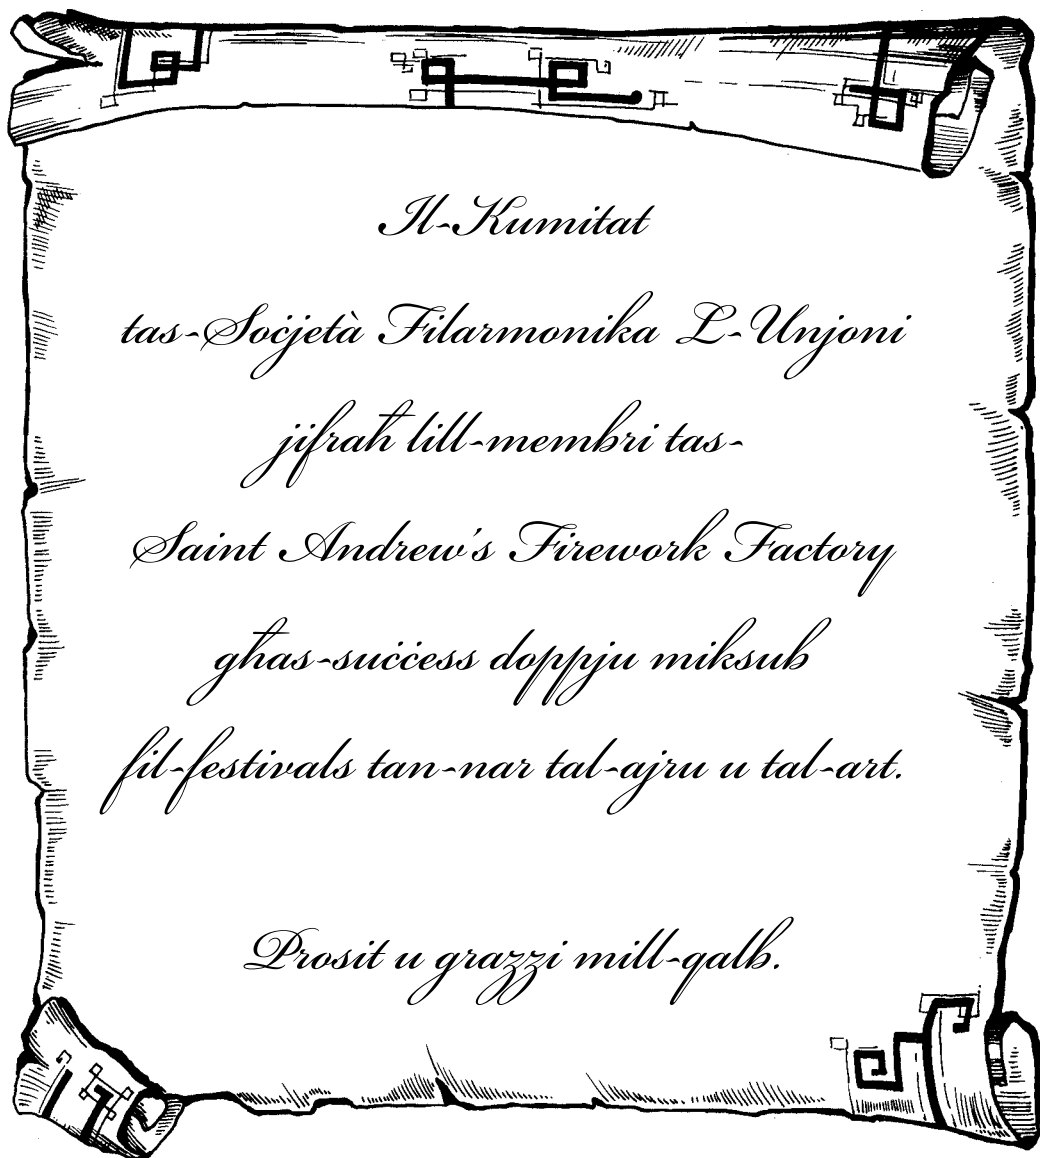 Il-Kumitat
tas-Soċjetà Filarmonika L-Unjoni
jifraħ lill-membri tas-
Saint Andrew's Firework Factory
għas-suċċess doppju miksub
fil-festivals tan-nar tal-ajru u tal-art.
Prosit u grazzi mill-qalb.